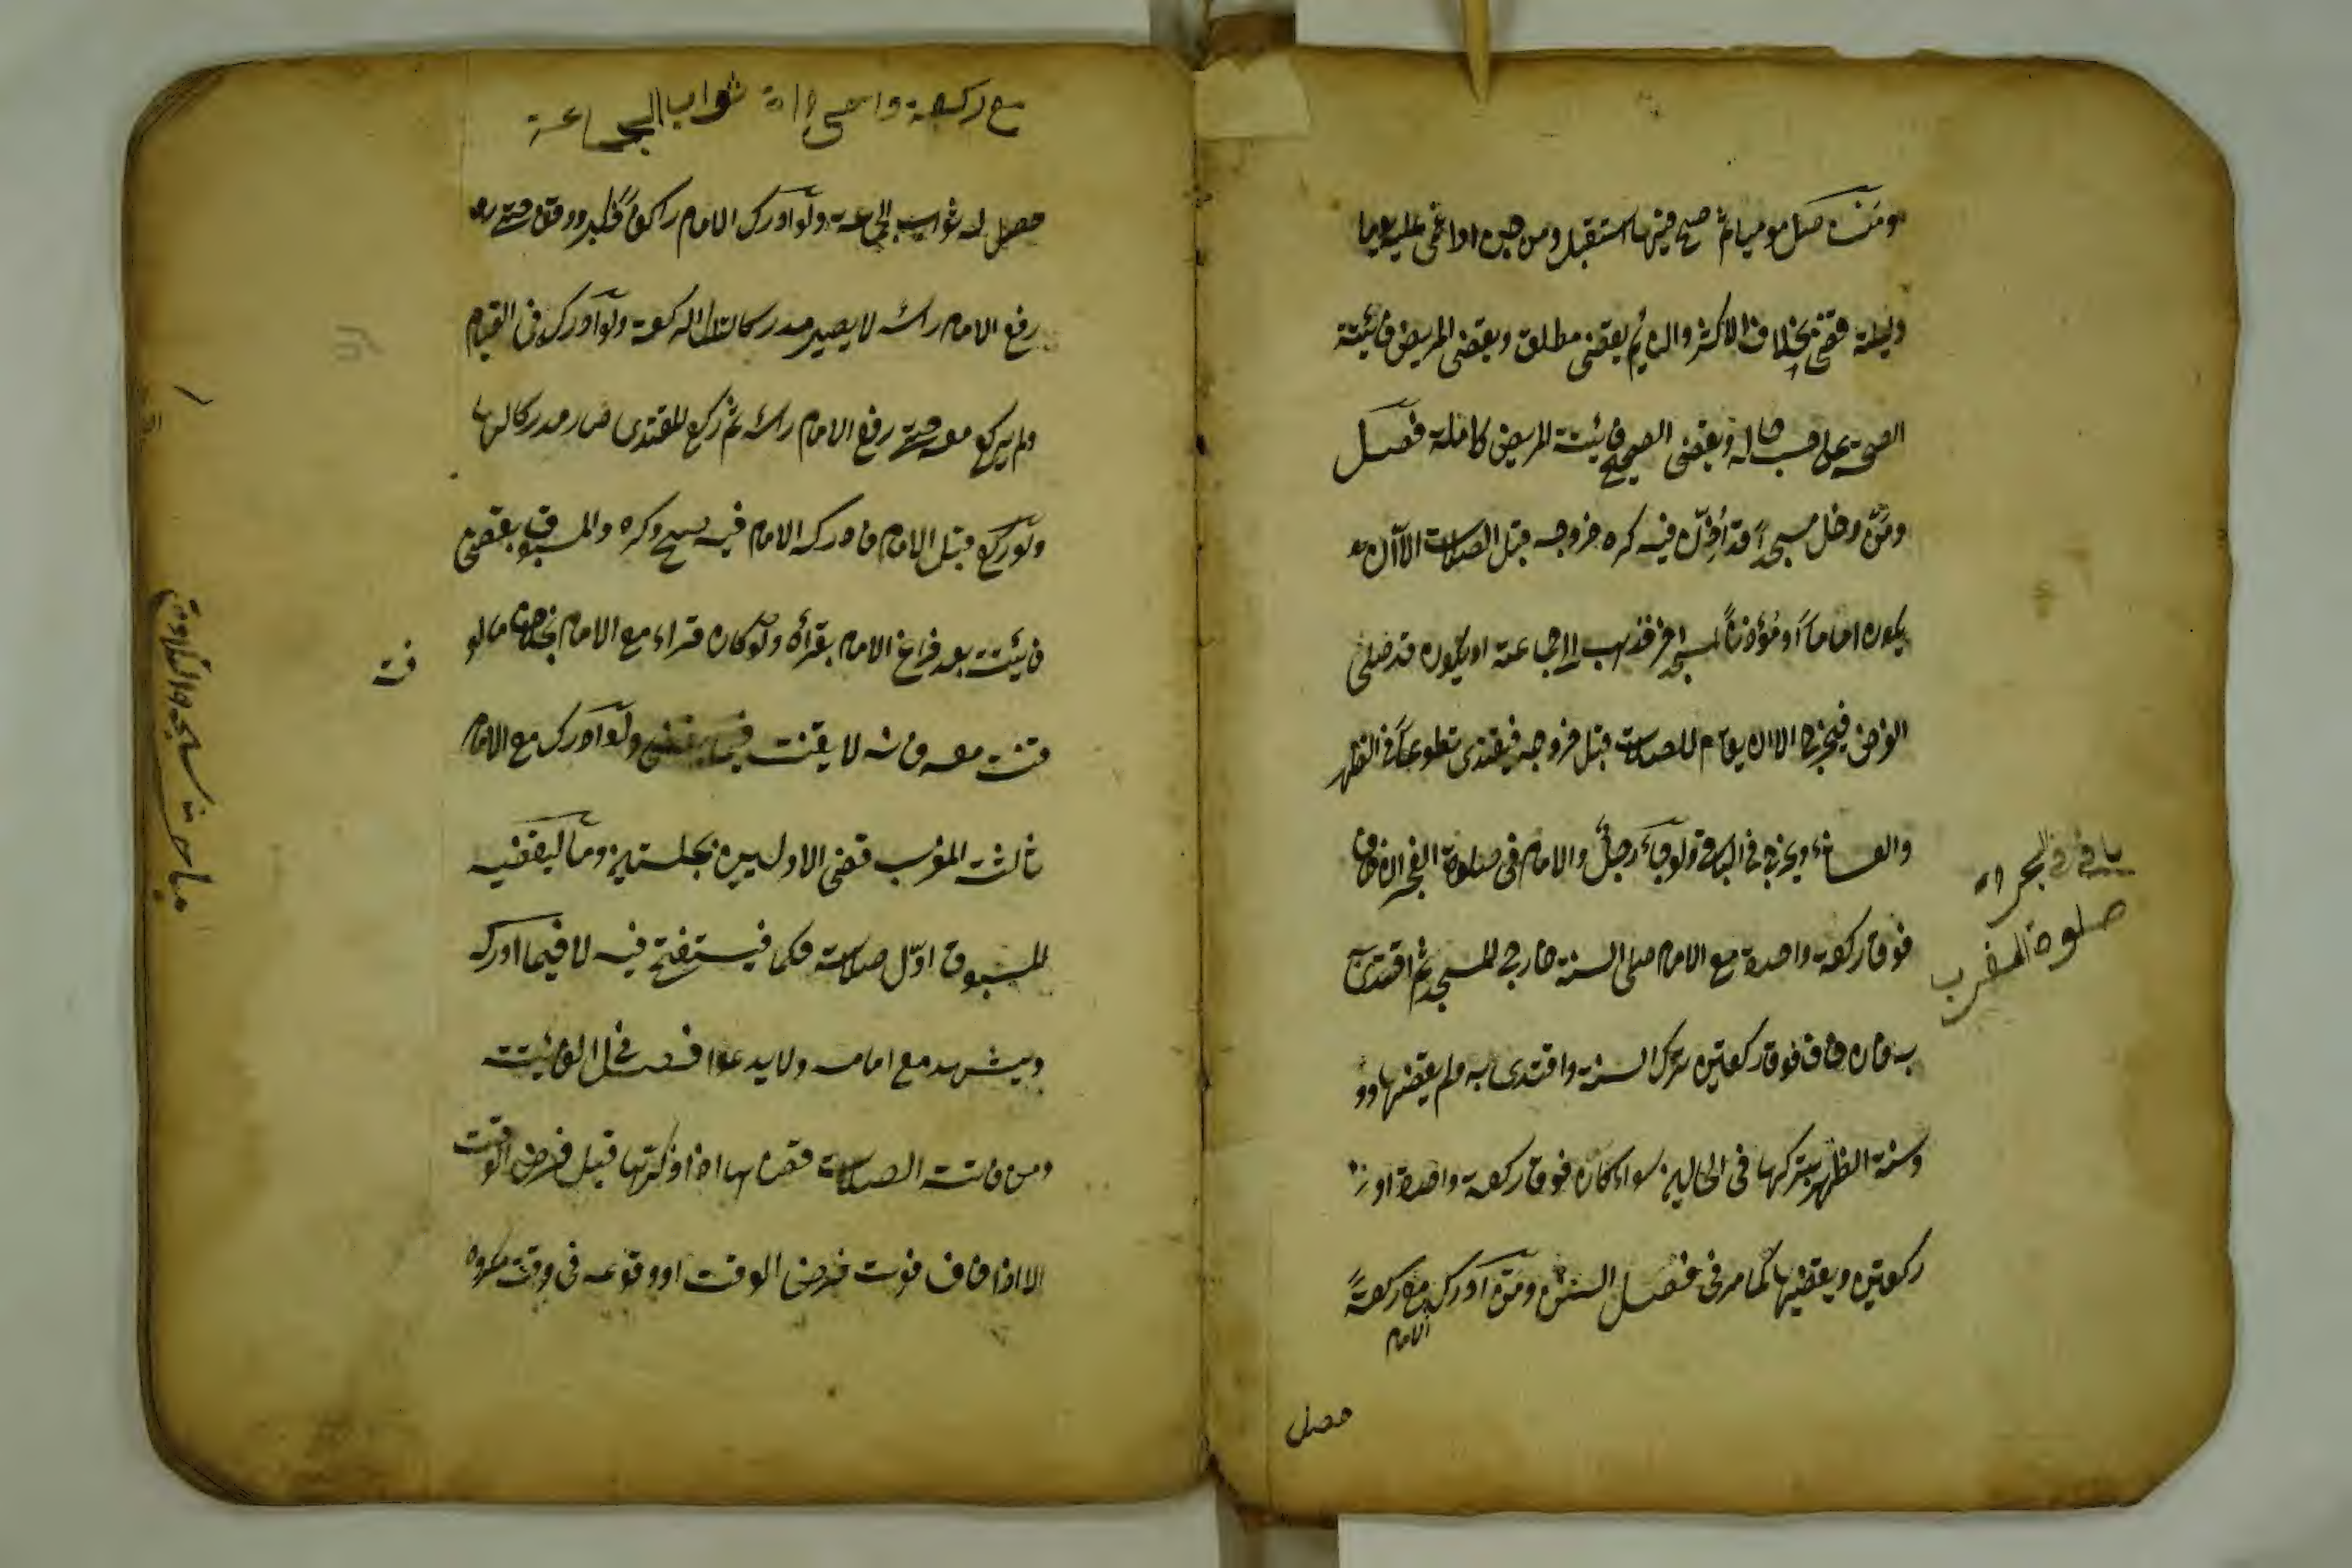 ومن صلى موميا ثم صح فيها استقبل ومن جن او اغمى عليه يوما
وليلة قضى بخلاف الاكثر والنايم يقضى مطلقا ويقضى المريض فائتة
الصحة على حسب حاله ويقضى الصحيح فائتة المريض كاملة فصل
ومن دخل مسجدا قد اذن فيه كره خروجه قبل الصلاة الا ان
يكون اماما او مؤذنا لمسجد اخر فذهب الى جماعة او يكون قد صلى
الفرض فيخرج الا ان يقام للصلاة قبل خروجه فيقتدى تطوعا فى الظهر
والعشاء ويخرج فى الباقى ولو جاء رجل والامام فى صلوة الفجر ان خاف
فوق ركعة واحدة مع الامام صلى السنة خارج المسجد ثم اقتدى
به فان خاف فوق ركعتين ترك السنة واقتدى به ولم يقضها
وسنة الظهر يتركها فى الحالين سواء كان فوق ركعة واحدة او
ركعتين ويقضيها كما مر فى فصل السنن ومن ادرك مع ركعة
الامام
صلوة المغرب
حصل
مع ركعة ثواب الجماعة
حصل له ثواب الجماعة ولو ادرك الامام راكعا فكبر ووقف حتى
رفع الامام رأسه لا يصير مدركا لتلك الركعة ولو ادرك فى القيام
ولم يركع معه حتى رفع الامام رأسه ثم ركع المقتدى صار مدركا لها
ولو ركع قبل الامام فادركه الامام فيه يصح وكره والمسبوق يقضى
فائتة بعد فراغ الامام بقراءة ولو كان قراء مع الامام بخلاف ما لو
قنت معه فانه لا يقنت فيما يقضى ولو ادرك مع الامام
ثالثة المغرب قضى الاوليين بجلستين وما يقضيه
المسبوق اول صلاته حكما فيستفتح فيه لا فيما ادركه
ويتشهد مع امامه ولا يدعوا فصل فى الفائتة
ومن فاتته الصلاة قضاها اذا ذكرها قبل فرض الوقت
الا اذا خاف فوت فرض الوقت او وقوعه فى وقت مكروه
مباحث سجدة التلاوة